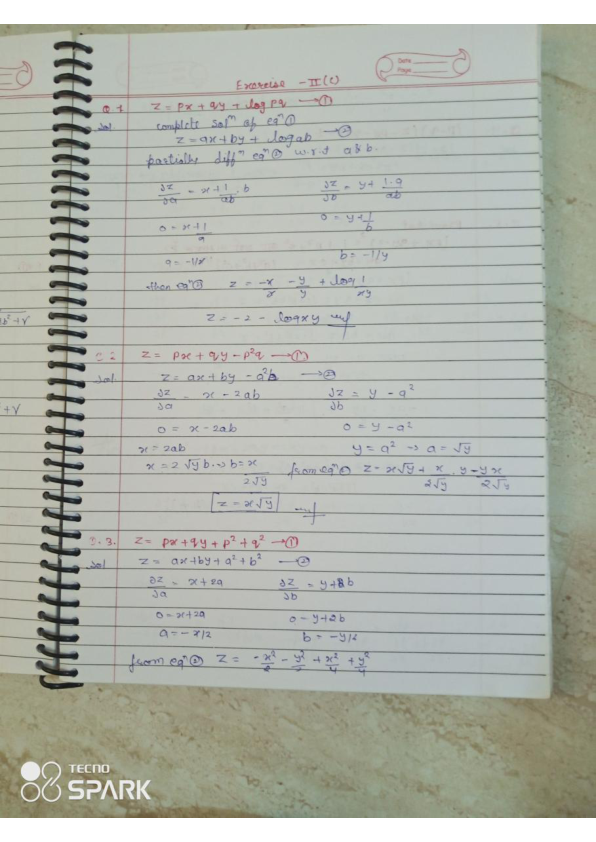 Date
Page
Exercise - II (c)
Q.1 z = px + qy + log pq → ①
Sol complete solⁿ of eqⁿ ①
z = ax + by + log ab → ②
partially diffⁿ eqⁿ ② w.r.t a & b.
∂z/∂a = x + 1/ab . b ∂z/∂b = y + 1.a/ab
0 = x + 1/a 0 = y + 1/b
a = -1/x b = -1/y
then eqⁿ ② z = -x/x - y/y + log 1/xy
z = -2 - log xy
Q.2 z = px + qy - p²q → ①
Sol. z = ax + by - a²b → ②
∂z/∂a = x - 2ab ∂z/∂b = y - a²
0 = x - 2ab 0 = y - a²
x = 2ab y = a² → a = √y
x = 2√y b → b = x/2√y from eqⁿ ② z = x√y + x/2√y . y - yx/2√y
z = x√y
Q.3. z = px + qy + p² + q² → ①
Sol z = ax + by + a² + b² → ②
∂z/∂a = x + 2a ∂z/∂b = y + 2b
0 = x + 2a 0 = y + 2b
a = -x/2 b = -y/2
from eqⁿ ② z = -x²/2 - y²/2 + x²/4 + y²/4
TECNO
SPARK